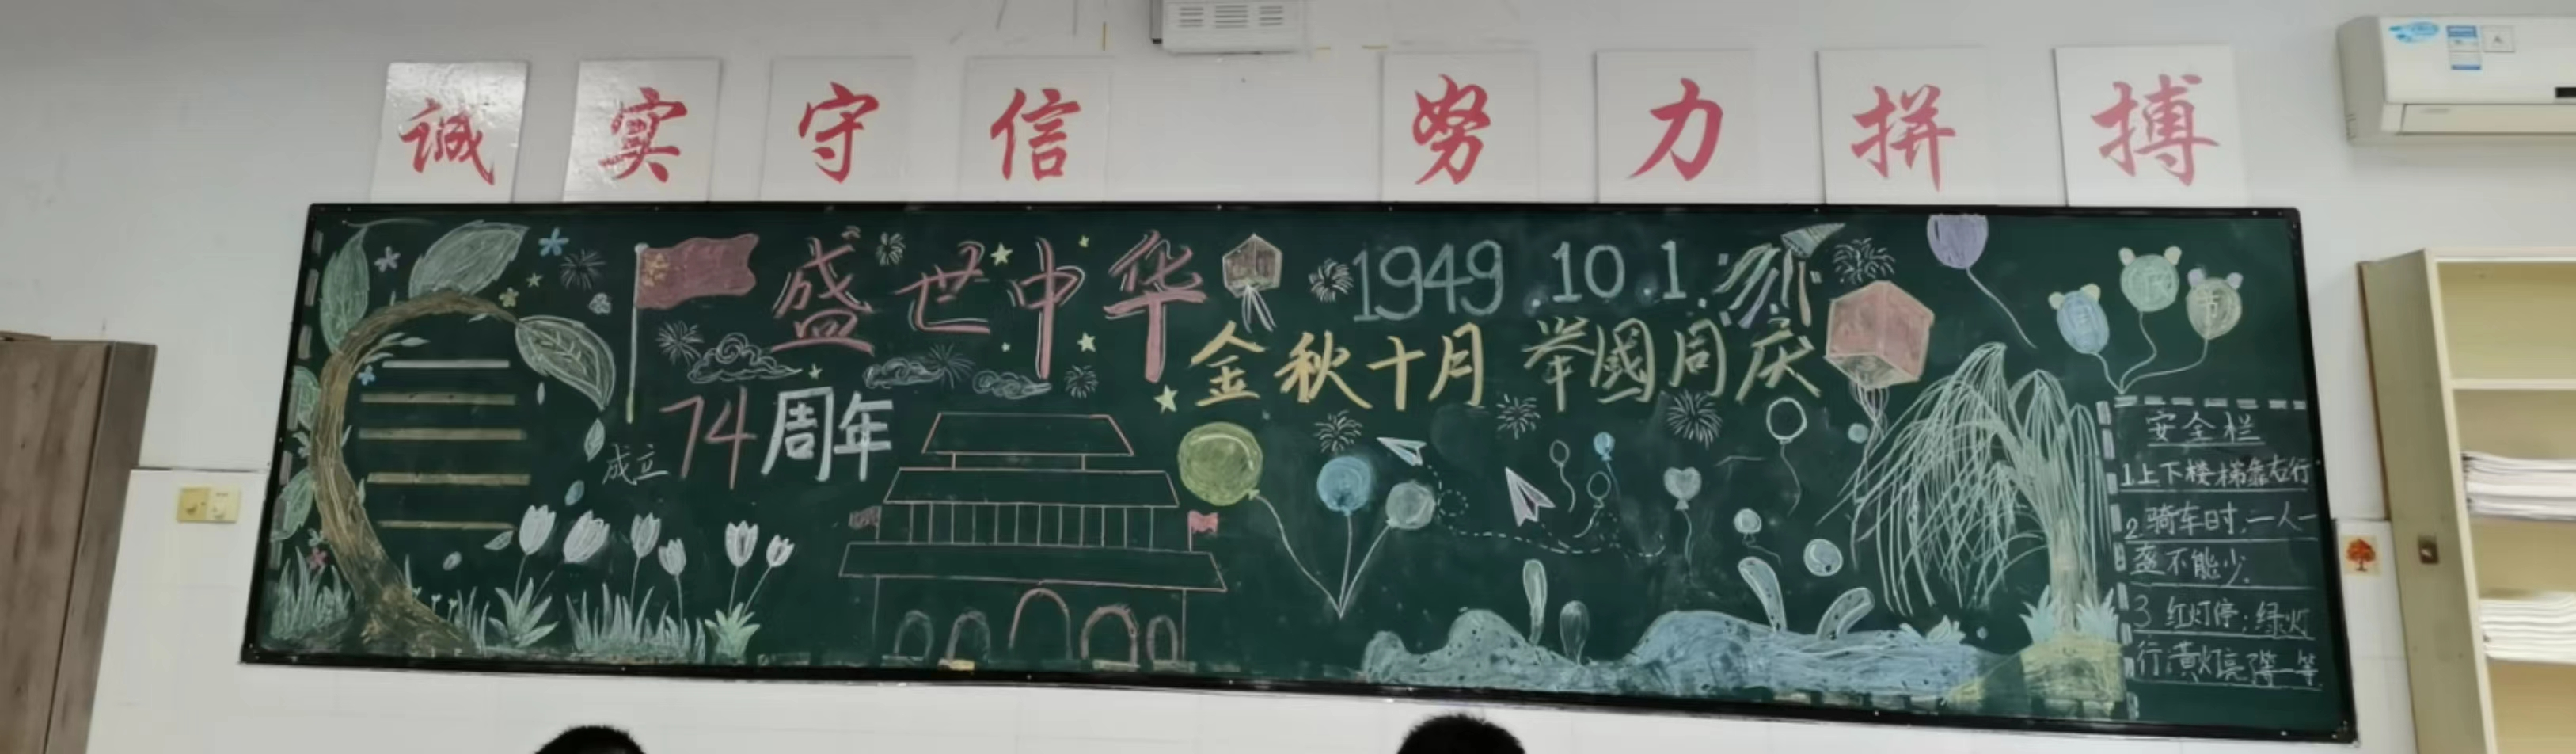 诚实守信 努力拼搏
盛世中华
1949.10.1
金秋十月 举國同庆
成立74周年
国民节
安全栏
1上下楼梯靠右行
2.骑车时,一人一
盔不能少.
3 红灯停;绿灯
行;黄灯亮了等一等